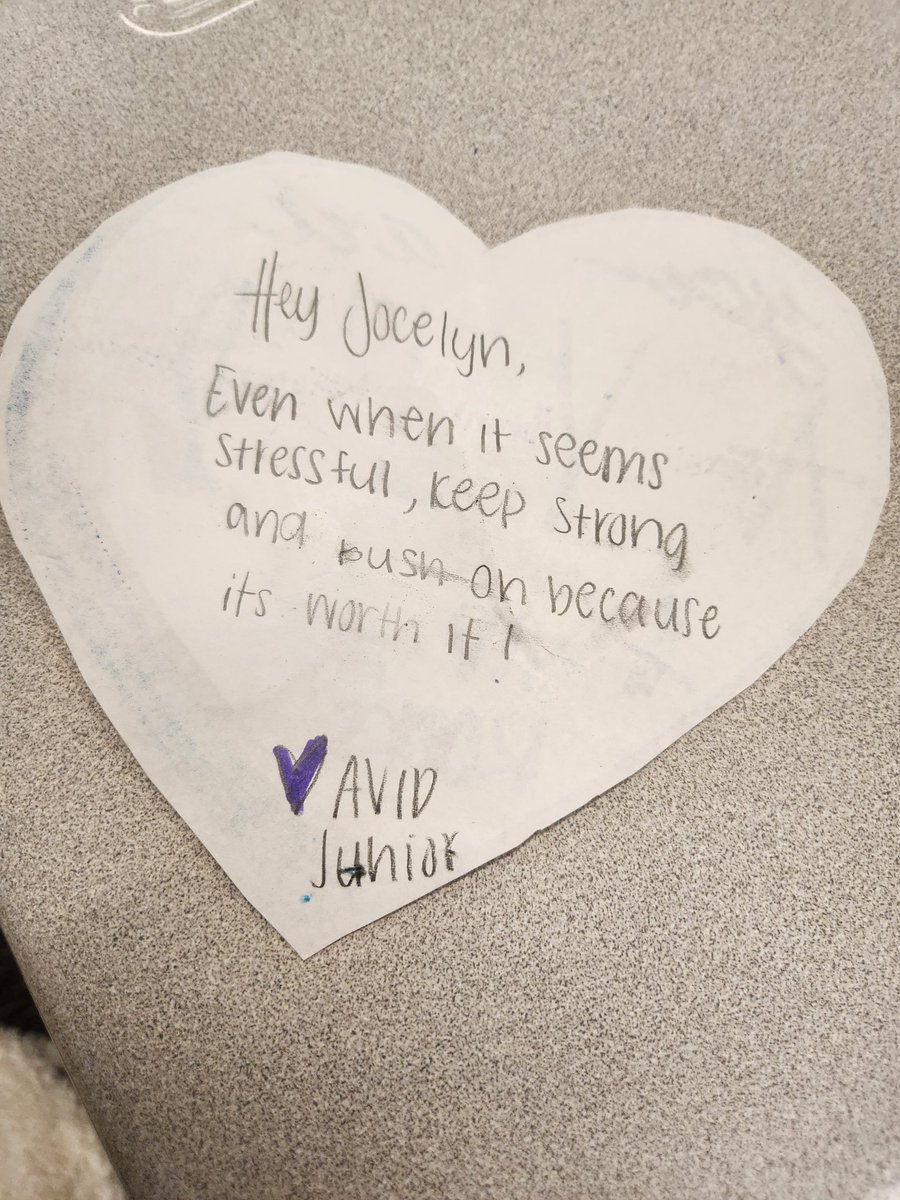 Hey Jocelyn,
Even when it seems
stressful, keep strong
and push on because
its worth it!
AVID
Junior